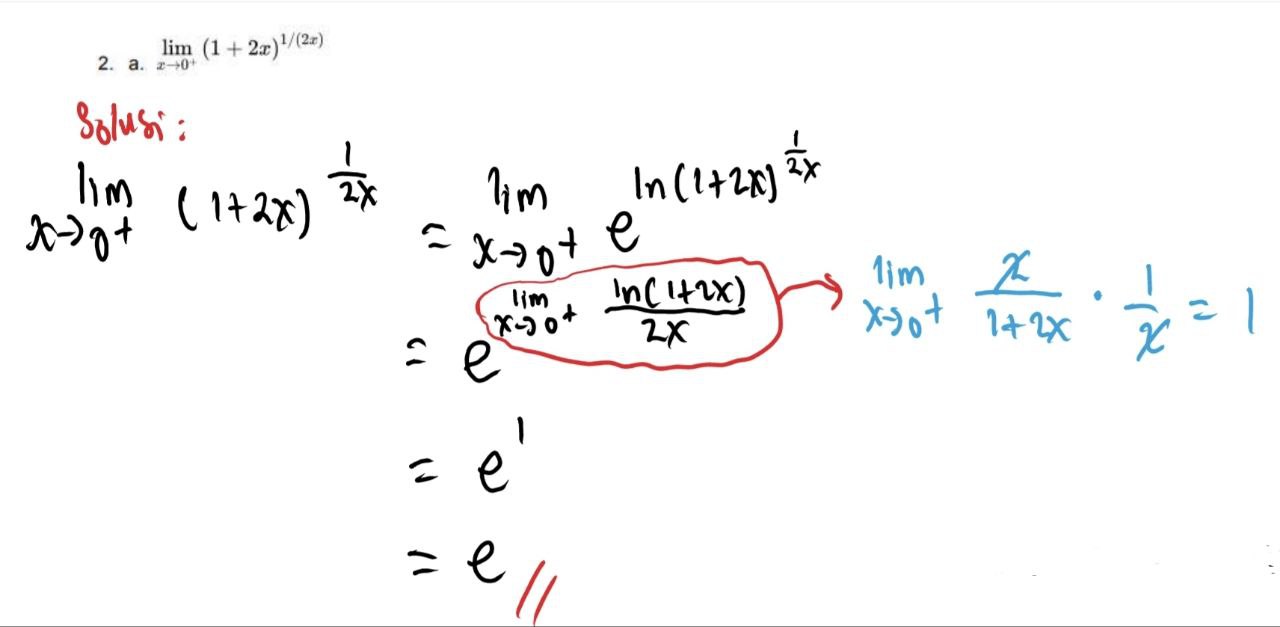 2. a. lim x→0⁺ (1 + 2x)^{1/(2x)}
Solusi :
lim x→0⁺ (1+2x)^{1/2x} = lim x→0⁺ e^{ln(1+2x)^{1/2x}}
= e^{lim x→0⁺ ln(1+2x)/2x} → lim x→0⁺ x/(1+2x) · 1/x = 1
= e^1
= e //